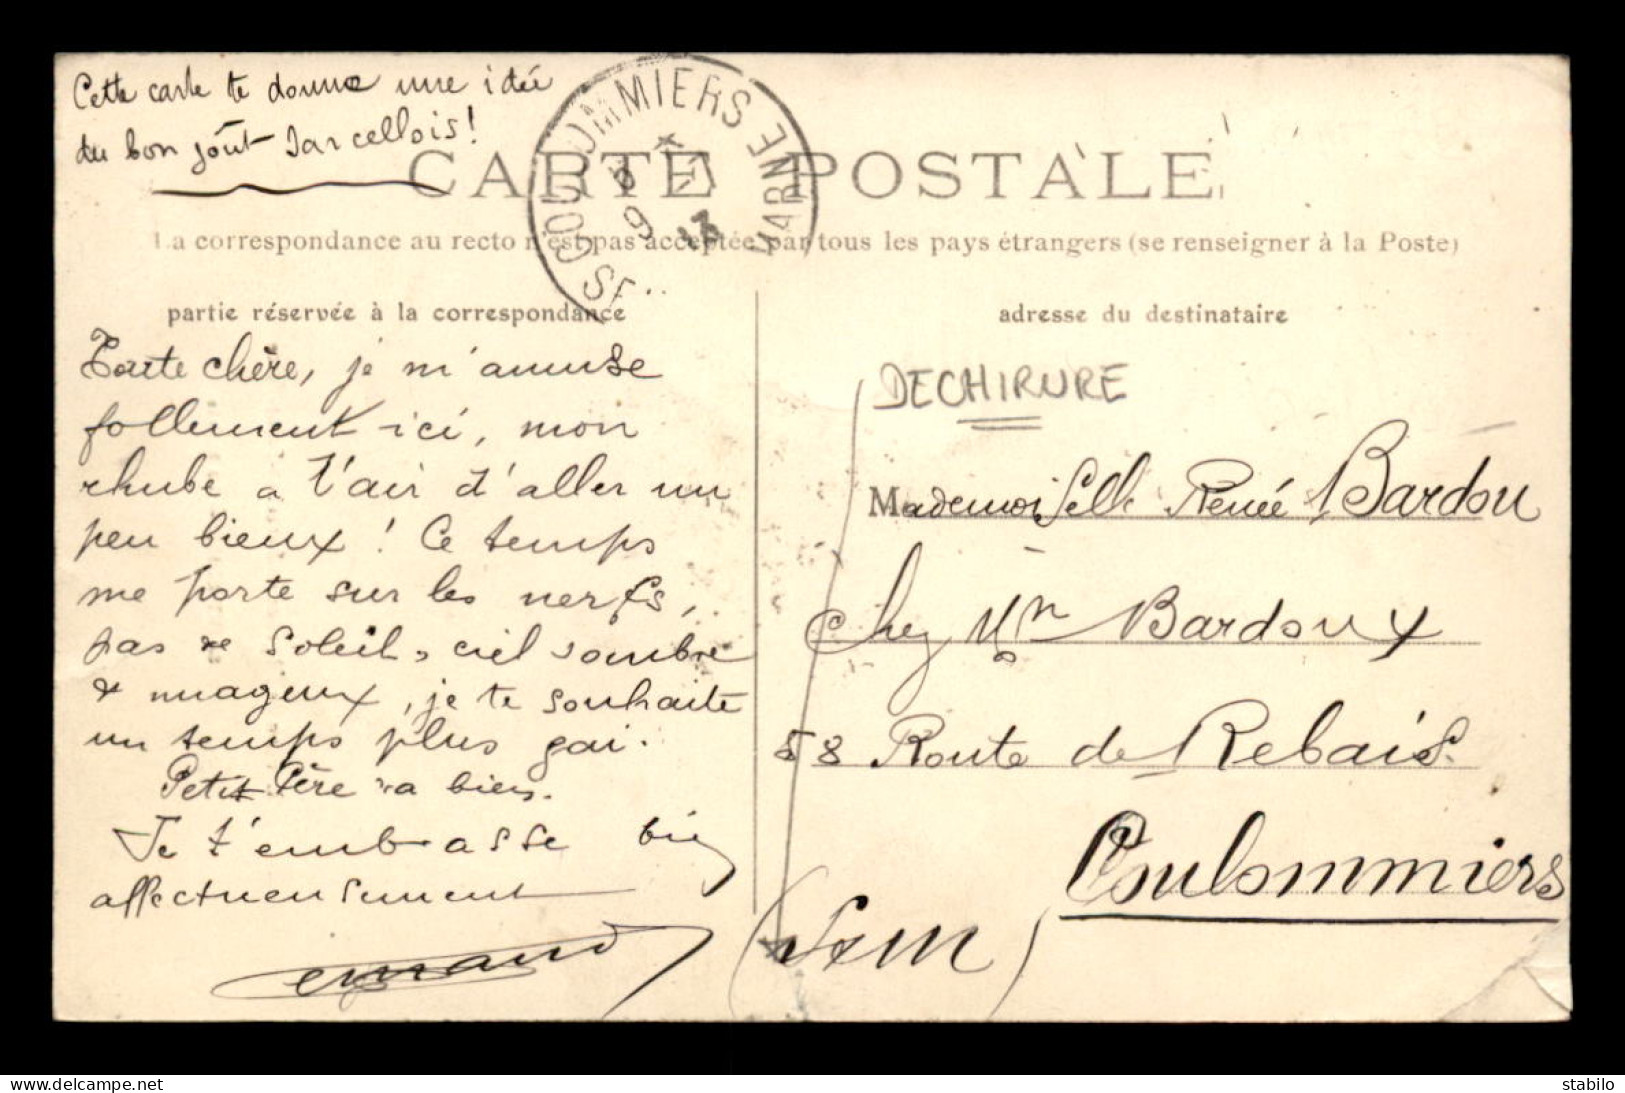 Cette carte te donne une idée
du bon goût Sarcellois!
COULOMMIERS
SE
MARNE
CARTE POSTALE
La correspondance au recto n'est pas acceptée par tous les pays étrangers (se renseigner à la Poste)
partie réservée à la correspondance
chère, je m'amuse
follement ici, mon
rhube a l'air d'aller un
peu bieux! Ce temps
me porte sur les nerfs,
pas de soleil, ciel sombre
& nuageux, je te souhaite
un temps plus gai.
Petit Père va bien.
Je t'embrasse bien
affectueusement
adresse du destinataire
DECHIRURE
Mademoiselle Renée Bardou
Chez Mr Bardoux
58 Route de Rebais.
Coulommiers
(S et M)
delcampe.net
stabilo